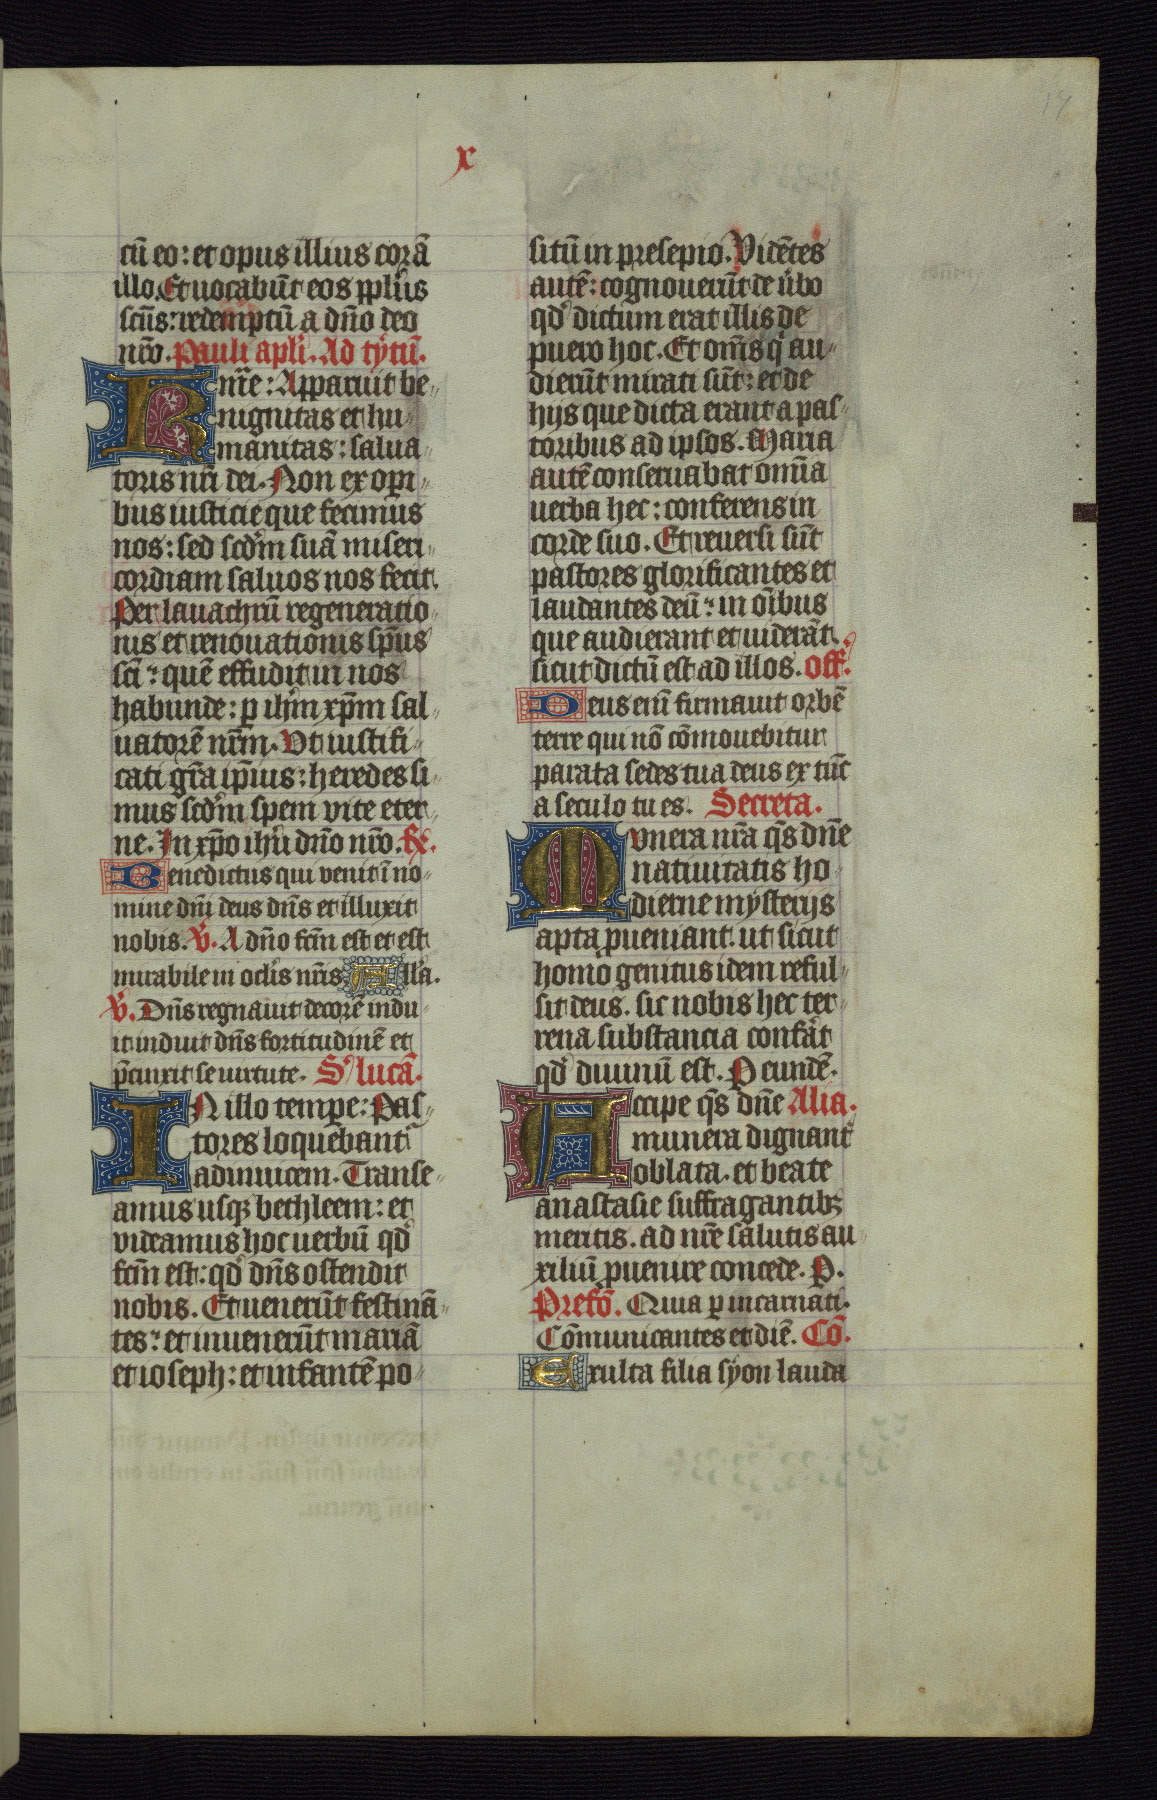 x
cū eo: et opus illius corā
illo. Et uocabūt eos pplūs
scūs: redemptū a dño deo
nr̄o. Pauli apli. Ad tytū.
Krm̄e: Apparuit be-
nignitas et hu-
manitas: salua-
toris nr̄i dei. Non ex opi-
bus iusticie que fecimus
nos: sed scdm̄ suā miseri-
cordiam saluos nos fecit.
Per lauachrū regeneratio-
nis et renouationis sp̄us
sc̄i: quē effudit in nos
habunde: p ih̄m xp̄m sal-
uatorē nr̄m. Vt iustifi-
cati gr̄a ip̄ius: heredes si-
mus scdm̄ spem vite eter-
ne. In xp̄o ih̄u dño nr̄o. Rx.
Benedictus qui venit ī no-
mine dn̄i deus dn̄s et illuxit
nobis. V̄. A dño fc̄m est et est
mirabile in oclis nr̄is All'a.
V̄. Dn̄s regnauit decorē indu-
it induit dn̄s fortitudinē et
p̄cinxit se uirtute. S' lucā.
IN illo tempe: Pas-
tores loquebant'
adinuicem. Transe-
amus usqꝫ bethleem: et
videamus hoc uerbū qd'
fc̄m est: qd' dn̄s ostendit
nobis. Et uenerūt festinā-
tes: et inuenerūt mariā
et ioseph: et infantē po-
sitū in presepio. Vidētes
autē: cognouerūt de u'bo
qd' dictum erat illis de
puero hoc. Et om̄is q' au-
dierūt mirati sūt: et de
hijs que dicta erant a pas-
toribus ad ipsos. Maria
autē conseruabat om̄ia
uerba hec: conferens in
corde suo. Et reuersi sūt
pastores glorificantes et
laudantes deū: in oībus
que audierant et uiderāt.
sicut dictū est ad illos. Off.
Deus eni firmauit orbē
terre qui nō cōmouebitur
parata sedes tua deus ex tūc
a seculo tu es. Secreta.
Mvnera nr̄a qs dn̄e
natiuitatis ho-
dierne mysterijs
apta pueniant. ut sicut
homo genitus idem reful-
sit deus. sic nobis hec ter-
rena substancia conf'at
qd' diuinū est. P eundē.
Accipe qs dn̄e Alia.
munera dignant'
oblata. et beate
anastasie suffragantibꝫ
meritis. ad nr̄e salutis au-
xiliū puenire concede. P.
Prefō. Quia p incarnati.
Cōmunicantes et diē. Cō.
Exulta filia syon lauda